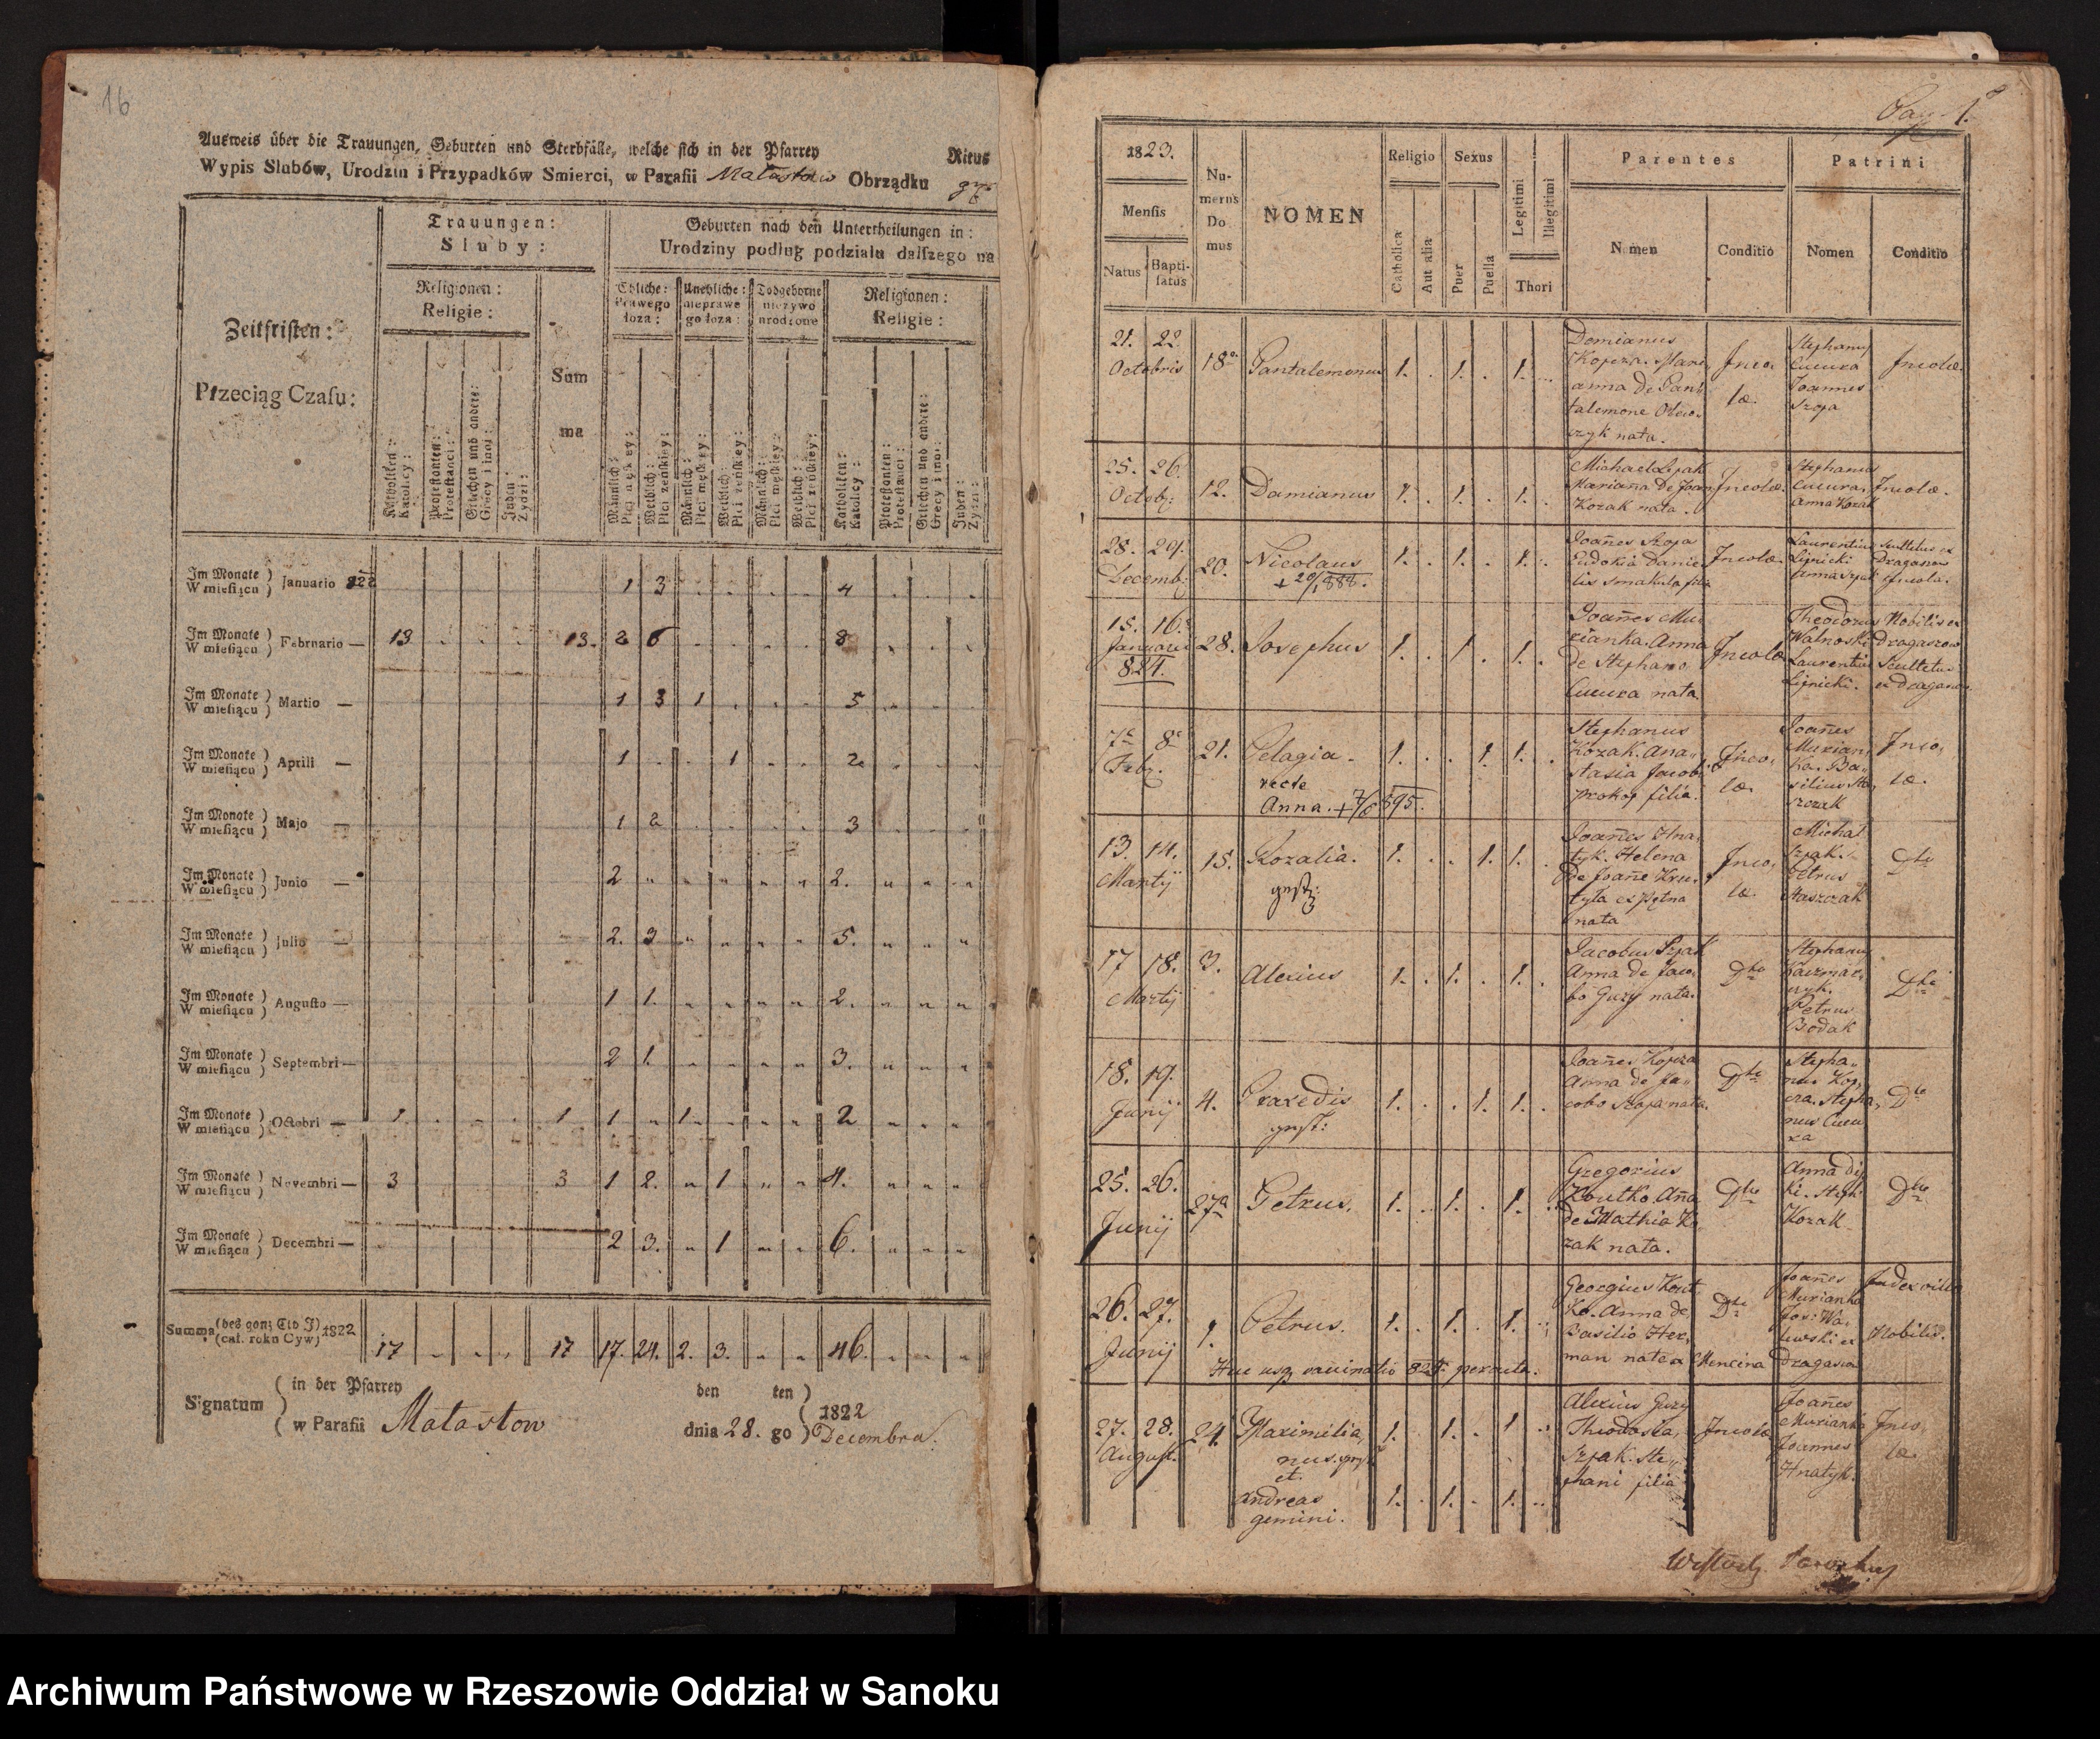 16
Ausweis über die Trauungen, Geburten und Sterbfälle, welche sich in der Pfarrey Ritus
Wypis Slubów, Urodzin i Przypadków Smierci, w Parafii Małastow Obrządku
Zeitfristen:
Przeciąg Czasu:
Trauungen:
Sluby:
Religionen:
Religie:
Katholiken:
Katolicy:
Protestanten:
Protestanci:
Griechen und andere:
Grecy i inni:
Juden:
Zydzi:
Sum
ma
Geburten nach den Untertheilungen in:
Urodziny podług podziału dalszego na
Ehliche:
Prawego
łoza:
Unehliche:
nieprawe
go łoza:
Todgeborne
niezywo
urodzone
Religionen:
Religie:
Männlich:
Płci męskiey:
Weiblich:
Płci zeńskiey:
Männlich:
Płci męskiey:
Weiblich:
Płci zeńskiey:
Männlich:
Płci męskiey:
Weiblich:
Płci zeńskiey:
Katholiken:
Katolicy:
Protestanten:
Protestanci:
Griechen und andere:
Grecy i inni:
Juden:
Zydzi:
Im Monate
W miesiącu ) Januario 822 1 3 4
Im Monate
W miesiącu ) Februario — 13 13. 2 6 8
Im Monate
W miesiącu ) Martio — 1 3 1 5
Im Monate
W miesiącu ) Aprili — 1 1 2
Im Monate
W miesiącu ) Majo — 1 2 3
Im Monate
W miesiącu ) Junio — 2 2.
Im Monate
W miesiącu ) Julio — 2. 3 5.
Im Monate
W miesiącu ) Augusto — 1 1. 2.
Im Monate
W miesiącu ) Septembri — 2 1. 3.
Im Monate
W miesiącu ) Octobri — 1. 1 1 1. 2
Im Monate
W miesiącu ) Novembri — 3 3 1 2. 1 4.
Im Monate
W miesiącu ) Decembri — 2 3. 1 6.
Summa 1822 17 17 17. 24. 2. 3. 46.
Signatum
( in der Pfarrey den ten )
( w Parafii Małastow dnia 28. go ) 1822 Decembra.
Pag. 1.
1823.
Mensis
Natus
Bapti-
satus
Nu-
merus
Do
mus
NOMEN
Religio
Catholica
Aut alia
Sexus
Puer
Puella
Legitimi
Illegitimi
Thori
Parentes
Nomen
Conditio
Patrini
Nomen
Conditio
21. 22.
Octobris
18
Pantalemonus
1. 1. 1.
Demianus
Kopcza. Mari
anna de Pant
talemone
czyk nata.
Inco,
læ.
Stephanus
Cucura
Joannes
Szoja
Incolæ.
25. 26.
Octob:
12.
Damianus
1. 1. 1.
Michael Szpak
Marianna de Joan
Kozak nata.
Incolæ.
Stephanus
Cucura,
Anna Kozak
Incolæ.
28. 29.
Decemb:
20.
Nicolaus
1. 1. 1.
Joanes Szoja
Eudokia Danie
lis Smakula filia
Incolæ
Laurentius
Lipnicki
Anna Szpak
Scultetus ex
Dragaszow
Incola.
15. 16.
Januarii
824.
28.
Josephus
1. 1. 1.
Joanes Mu
rianka. Anna
de Stephano
Cucura nata
Incolæ
Theodorus
Laurentius
Lipnicki.
Nobilis ex
Dragaszow
Scultetus
ex Dragaszow
7 8
Febr.
21.
Pelagia.
recte
Anna. + 7/6 895.
1. 1. 1.
Stephanus
Kozak. Ana,
stasia Jacob
Prokop filia.
Inco,
læ.
Joanes
Murian,
ka. Ba,
silius Sta,
szczak
Inco,
læ.
13. 14.
Martij
15.
Rozalia.
1. 1. 1.
Joanes Hna,
tyk. Helena
de Joane Kru,
tyla ex Pętna
nata
Inco,
læ.
Michal
Szpak.
Petrus
Staszczak
Dto
17 18.
Martij
3.
Alexius
1. 1. 1.
Jacobus Szpak
Anna de Jaco,
bo Guzy nata.
Dto
Stephanus
Kaczmar,
czyk.
Petrus
Bodak
Dto
18. 19.
Junij
4.
Praxedis
1. 1. 1.
Joanes Kopcza
Anna de Ja,
cobo Szoja nata.
Dto
Stepha,
nus Kop,
cza. Stepha,
nus Cucu
ra
Dto
25. 26.
Junij
27
Petrus.
1. 1. 1.
Gregorius
Koutko. Ana
de Mathia Ko
zak nata.
Dto
Anna
Steph
Kozak
Dto
26. 27.
Junij
1.
Petrus.
1. 1. 1.
Georgius Kout
ko. Anna de
Basilio Her,
man nate
Mencina
Dto
Joanes
Murianka
Dragaszow
Judex villæ
Nobilis.
Huc usq vaccinatio 825 peracta.
27. 28.
August.
24.
Maximilia,
nus
et.
Andreas
gemini.
1. 1. 1
1. 1. 1.
Alexius Guzy
Theodosia,
Szpak. Ste,
phani filia
Incolæ
Joanes
Murianka
Joannes
Hnatyk.
Inco,
læ.
Archiwum Państwowe w Rzeszowie Oddział w Sanoku